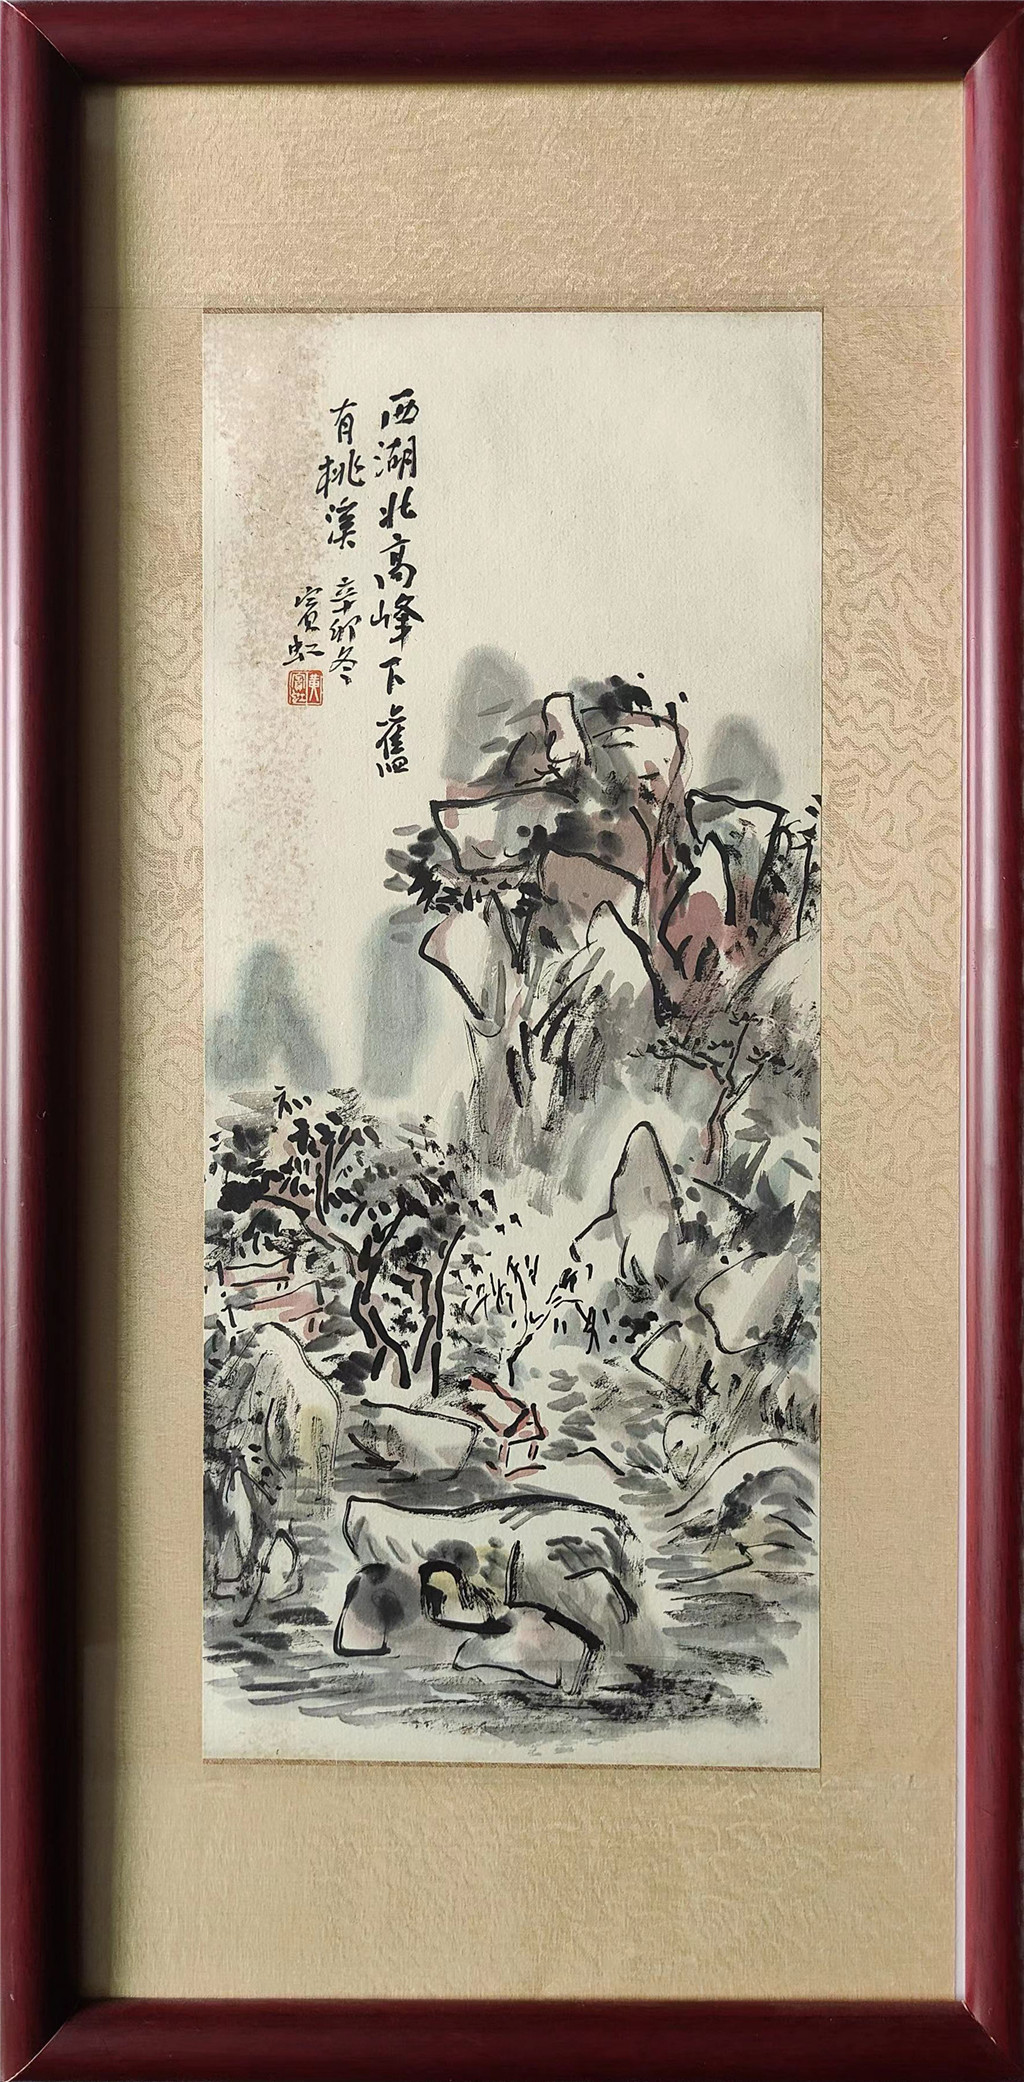 西湖北高峰下舊
有桃溪
辛卯冬
賓虹
黃賓虹